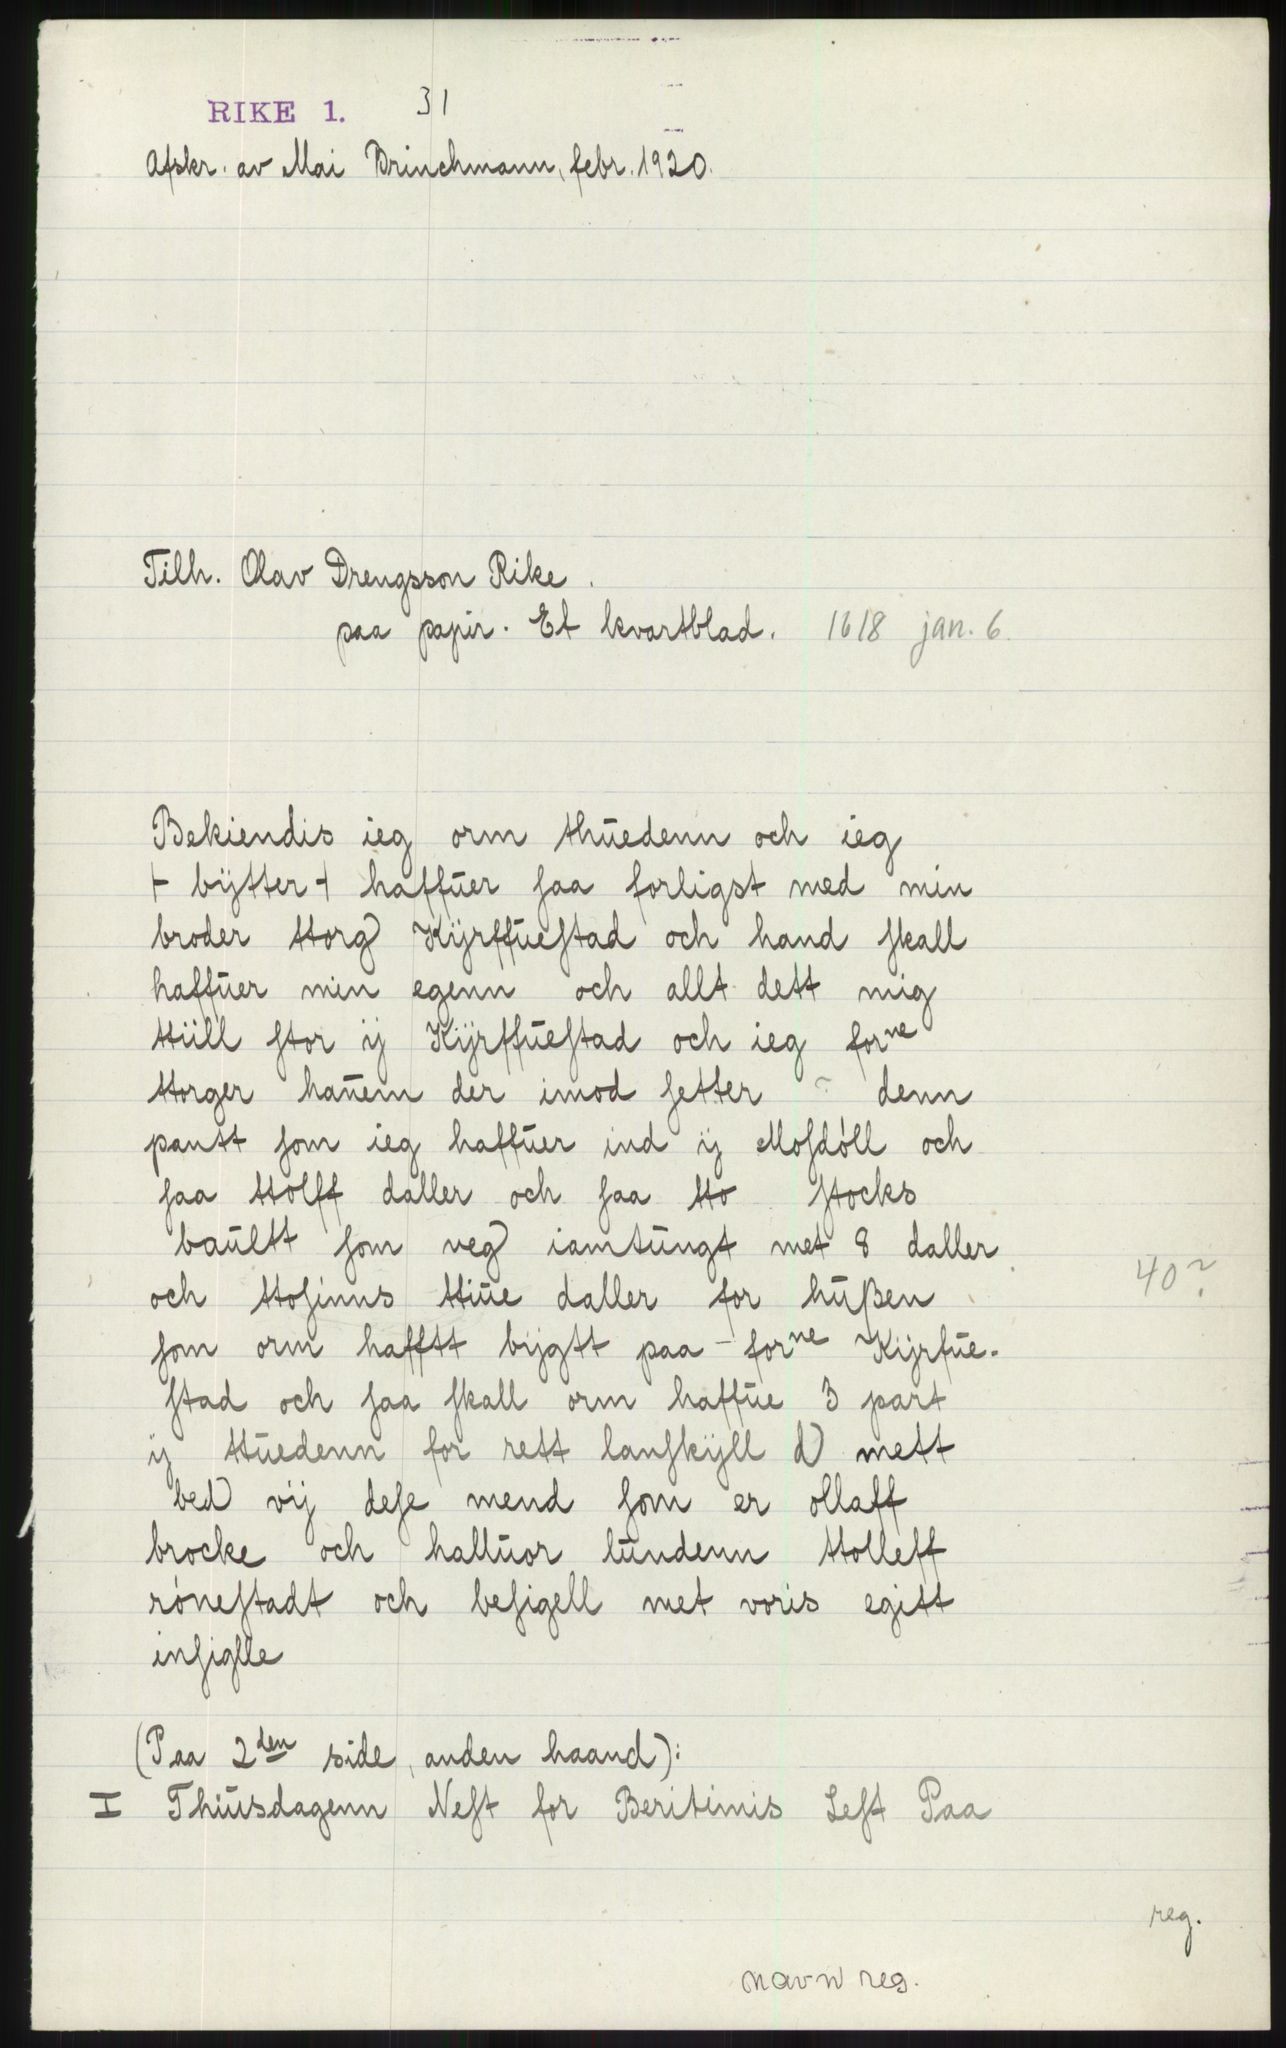 RIKE 1. 31
Afskr. av Mai Brinchmann, febr. 1920.
Tilh. Olav Drengsson Rike.
paa papir. Et kvartblad. 1618 jan. 6.
Bekiendis ieg orm thŭedenn och ieg
⊢ bÿtter ⊣ haffŭer saa forligst med min
broder ttorg Kÿrffŭestad och hand skall
haffŭer min egenn och allt dett mig
ttŭll stor ÿ Kÿrffŭestad och ieg forne
ttorger hanem der imod setter denn
pantt som ieg haffŭer ind ÿ Mosdóll och
saa ttolff daller och saa tto stocks
baŭltt som veg iamtŭngt met 8 daller
och ttosinns ttiŭe daller for hŭßen 40?
som orm hafftt bÿgtt paa - forne Kÿrfŭe-
stad och saa skall orm haffŭe 3 part
ÿ ttŭedenn for rett lanskÿll d mett
bed vÿ dese mend som er ollaff
brocke och hallŭor lŭndenn ttolleff
rónestadt och besigell met voris egitt
insiglle
(Paa 2den side, anden haand):
I Thiŭsdagenn Nest for Beritimis Lest Paa
reg.
navn reg.